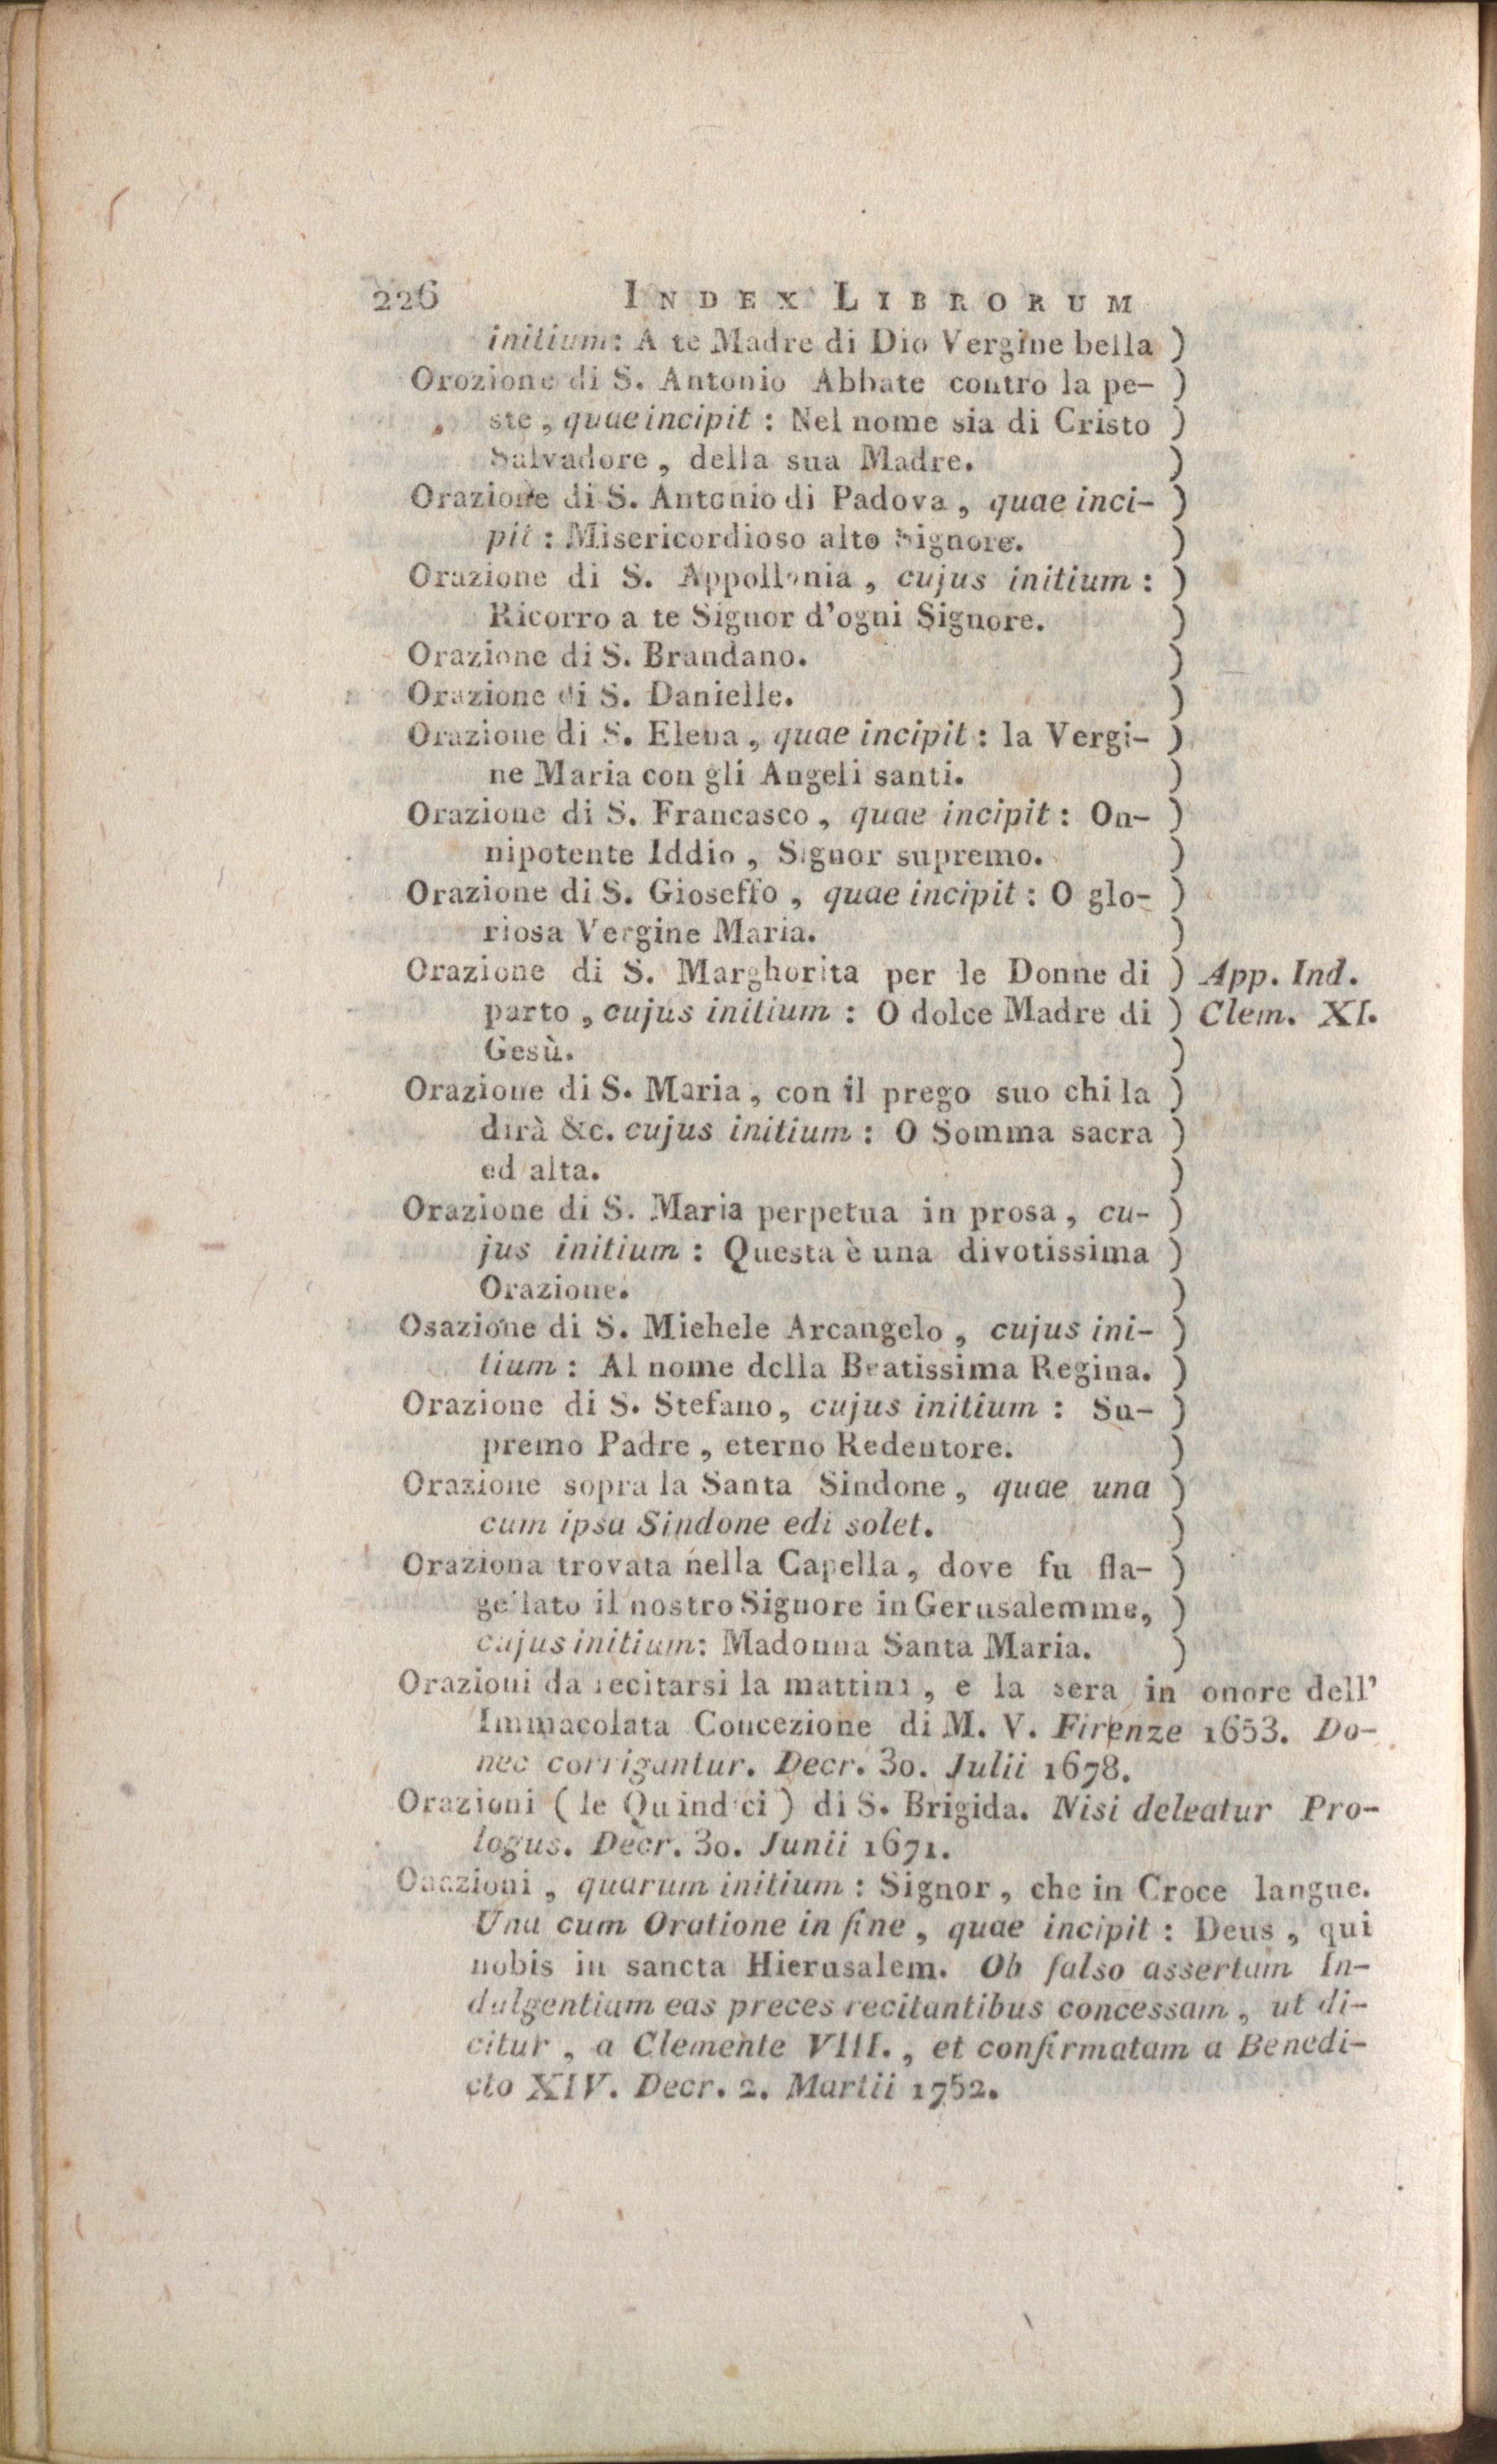 226 INDEX LIBRORUM
initium: A te Madre di Dio Vergine bella )
Orozione di S. Antonio Abbate contro la pe- )
ste, quae incipit : Nel nome sia di Cristo )
Salvadore, della sua Madre. )
Orazione di S. Antonio di Padova, quae inci- )
pit : Misericordioso alto Signore. )
Orazione di S. Appollonia, cujus initium : )
Ricorro a te Signor d'ogni Signore. )
Orazione di S. Brandano. )
Orazione di S. Danielle. )
Orazione di S. Elena, quae incipit : la Vergi- )
ne Maria con gli Angeli santi. )
Orazione di S. Francasco, quae incipit : On- )
nipotente Iddio, Signor supremo. )
Orazione di S. Gioseffo, quae incipit : O glo- )
riosa Vergine Maria. )
Orazione di S. Marghorita per le Donne di ) App. Ind.
parto, cujus initium : O dolce Madre di ) Clem. XI.
Gesù. )
Orazione di S. Maria, con il prego suo chi la )
dirà &c. cujus initium : O Somma sacra )
ed alta. )
Orazione di S. Maria perpetua in prosa, cu- )
jus initium : Questa è una divotissima )
Orazione. )
Osazione di S. Miehele Arcangelo, cujus ini- )
tium : Al nome della Beatissima Regina. )
Orazione di S. Stefano, cujus initium : Su- )
premo Padre, eterno Redentore. )
Orazione sopra la Santa Sindone, quae una )
cum ipsa Sindone edi solet. )
Oraziona trovata nella Capella, dove fu fla- )
gellato il nostro Signore in Gerusalemme, )
cujus initium: Madonna Santa Maria. )
Orazioni da recitarsi la mattina, e la sera in onore dell'
Immacolata Concezione di M. V. Firenze 1653. Do-
nec corrigantur. Decr. 30. Julii 1678.
Orazioni ( le Quindici ) di S. Brigida. Nisi deleatur Pro-
logus. Decr. 30. Junii 1671.
Oaazioni, quarum initium : Signor, che in Croce langue.
Una cum Oratione in fine, quae incipit : Deus, qui
nobis in sancta Hierusalem. Ob falso assertam In-
dulgentiam eas preces recitantibus concessam, ut di-
citur, a Clemente VIII., et confirmatam a Benedi-
cto XIV. Decr. 2. Martii 1752.